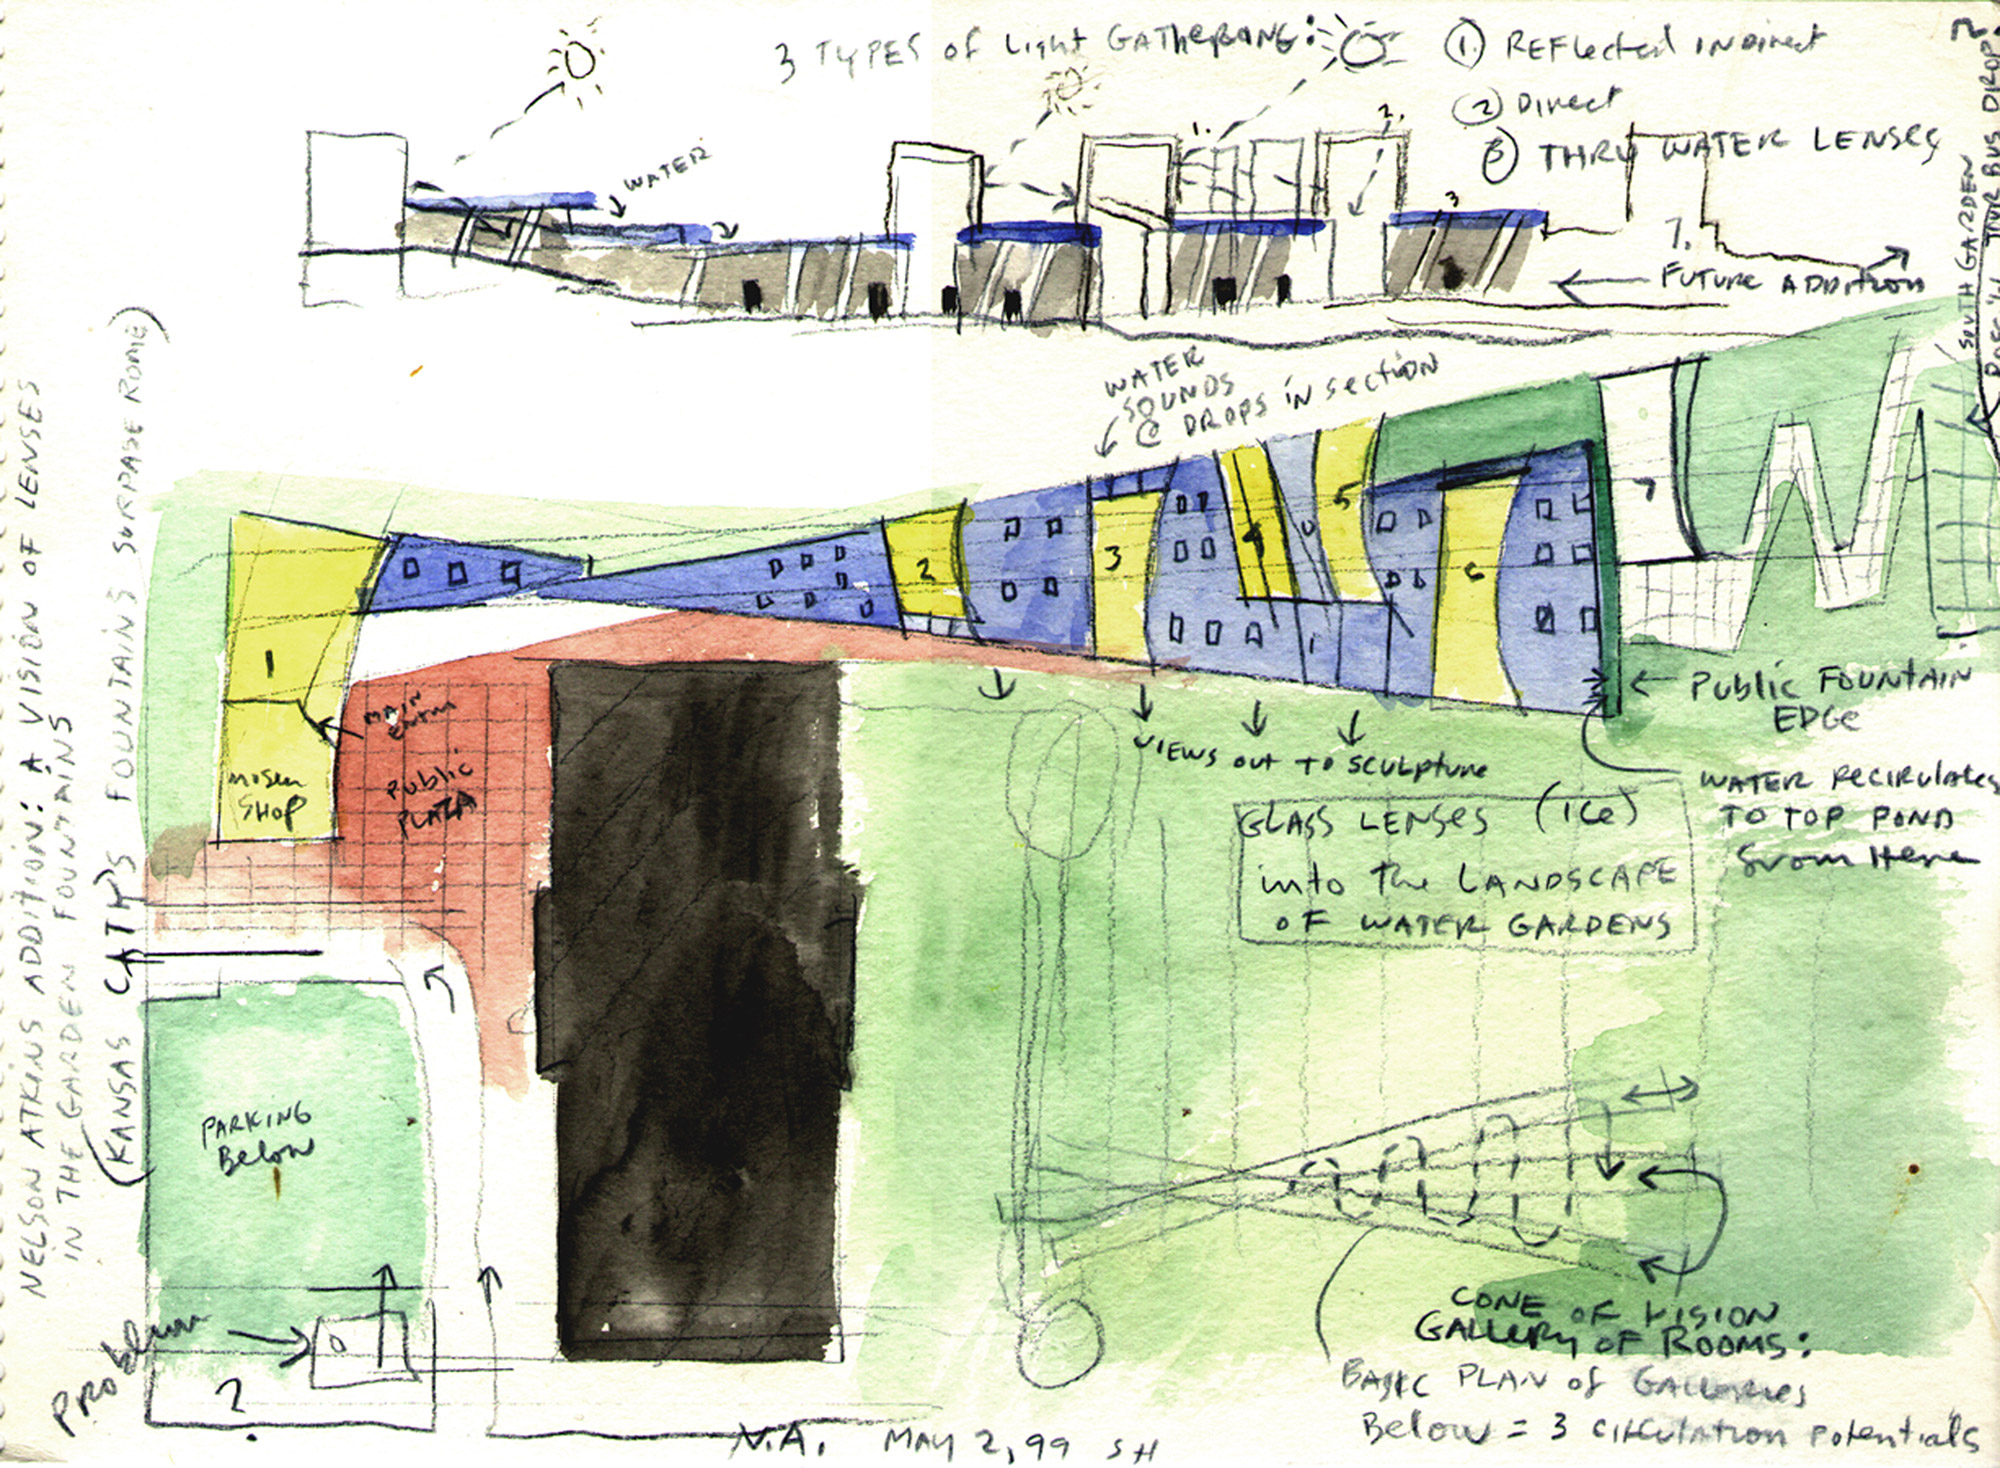 3 TYPES OF Light GATHERING:
① REFlected INDirect
② Direct
③ THRU WATER LENSES
WATER
1.
2.
3
7.
FUTURE ADDITION
SOUTH GARDEN
TOUR BUS DROP
WATER
SOUNDS
@ DROPS iN section
NELSON ATKINS ADDITION: A VISION OF LENSES
IN THE GARDEN FOUNTAINS
(KANSAS CATY'S FOUNTAINS SURPASE ROME)
1
2
3
4
5
6
7
MAIN
PUBLIC
PLAZA
SHOP
Public FOUNTAIN
EDGE
VIEWS out TO SCULPTURE
WATER RECIRULATES
TO TOP POND
from Here
GLASS LENSES (ICE)
into The LANDSCAPE
OF WATER GARDENS
PARKING
Below
PROBLEM
?
CONE OF VISION
GALLERY OF ROOMS:
BASIC PLAN OF GALLERIES
Below = 3 CIRCULATION POTENTIALS
N.A. MAY 2, 99 SH